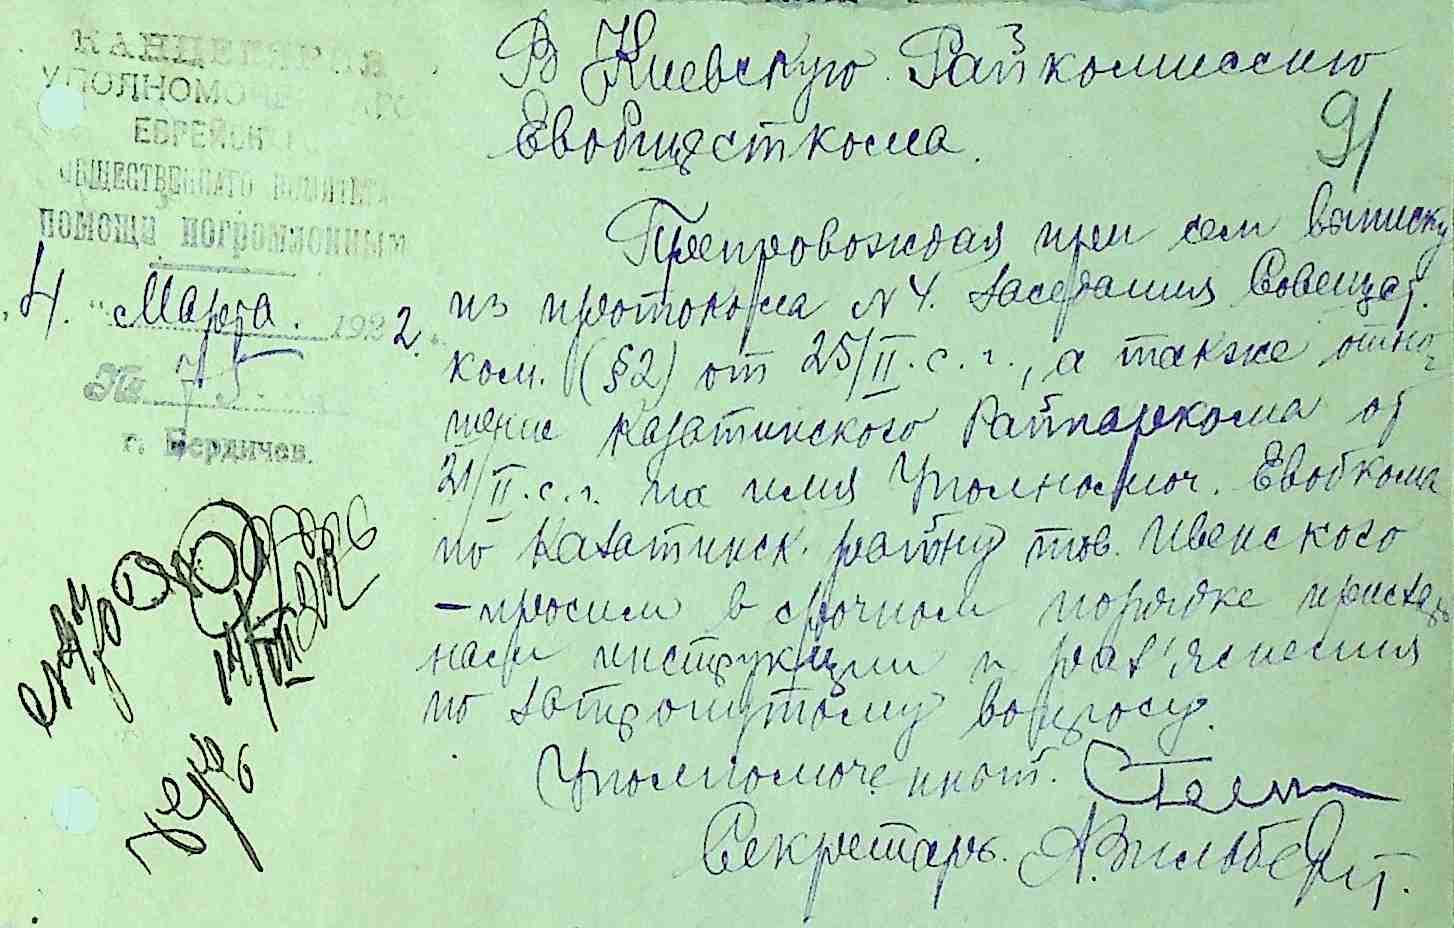 КАНЦЕЛЯРИЯ
УПОЛНОМОЧЕННАГО
ЕВРЕЙСКАГО
ОБЩЕСТВЕННАГО КОМИТЕТА
ПОМОЩИ ПОГРОМЛЕННЫМ
"4." Марта. 1922.
№ 75.
г. Бердичев.
В Киевскую Райкомиссию
Евобщесткома.
91
Препровождая при сем выписку
из протокола N 4. заседания Совещат.
ком. (§2) от 25/II. с. г., а также отно-
шение Казатинского Райпаркома от
21/II. с. г. на имя Уполномоч. Евобкома
по Казатинск. району тов. Ивенского
– просим в срочном порядке прислать
нам инструкции и раз'яснения
по затронутому вопросу.
Уполномоченный.
Секретарь. А. Вильберт.
14/III 22